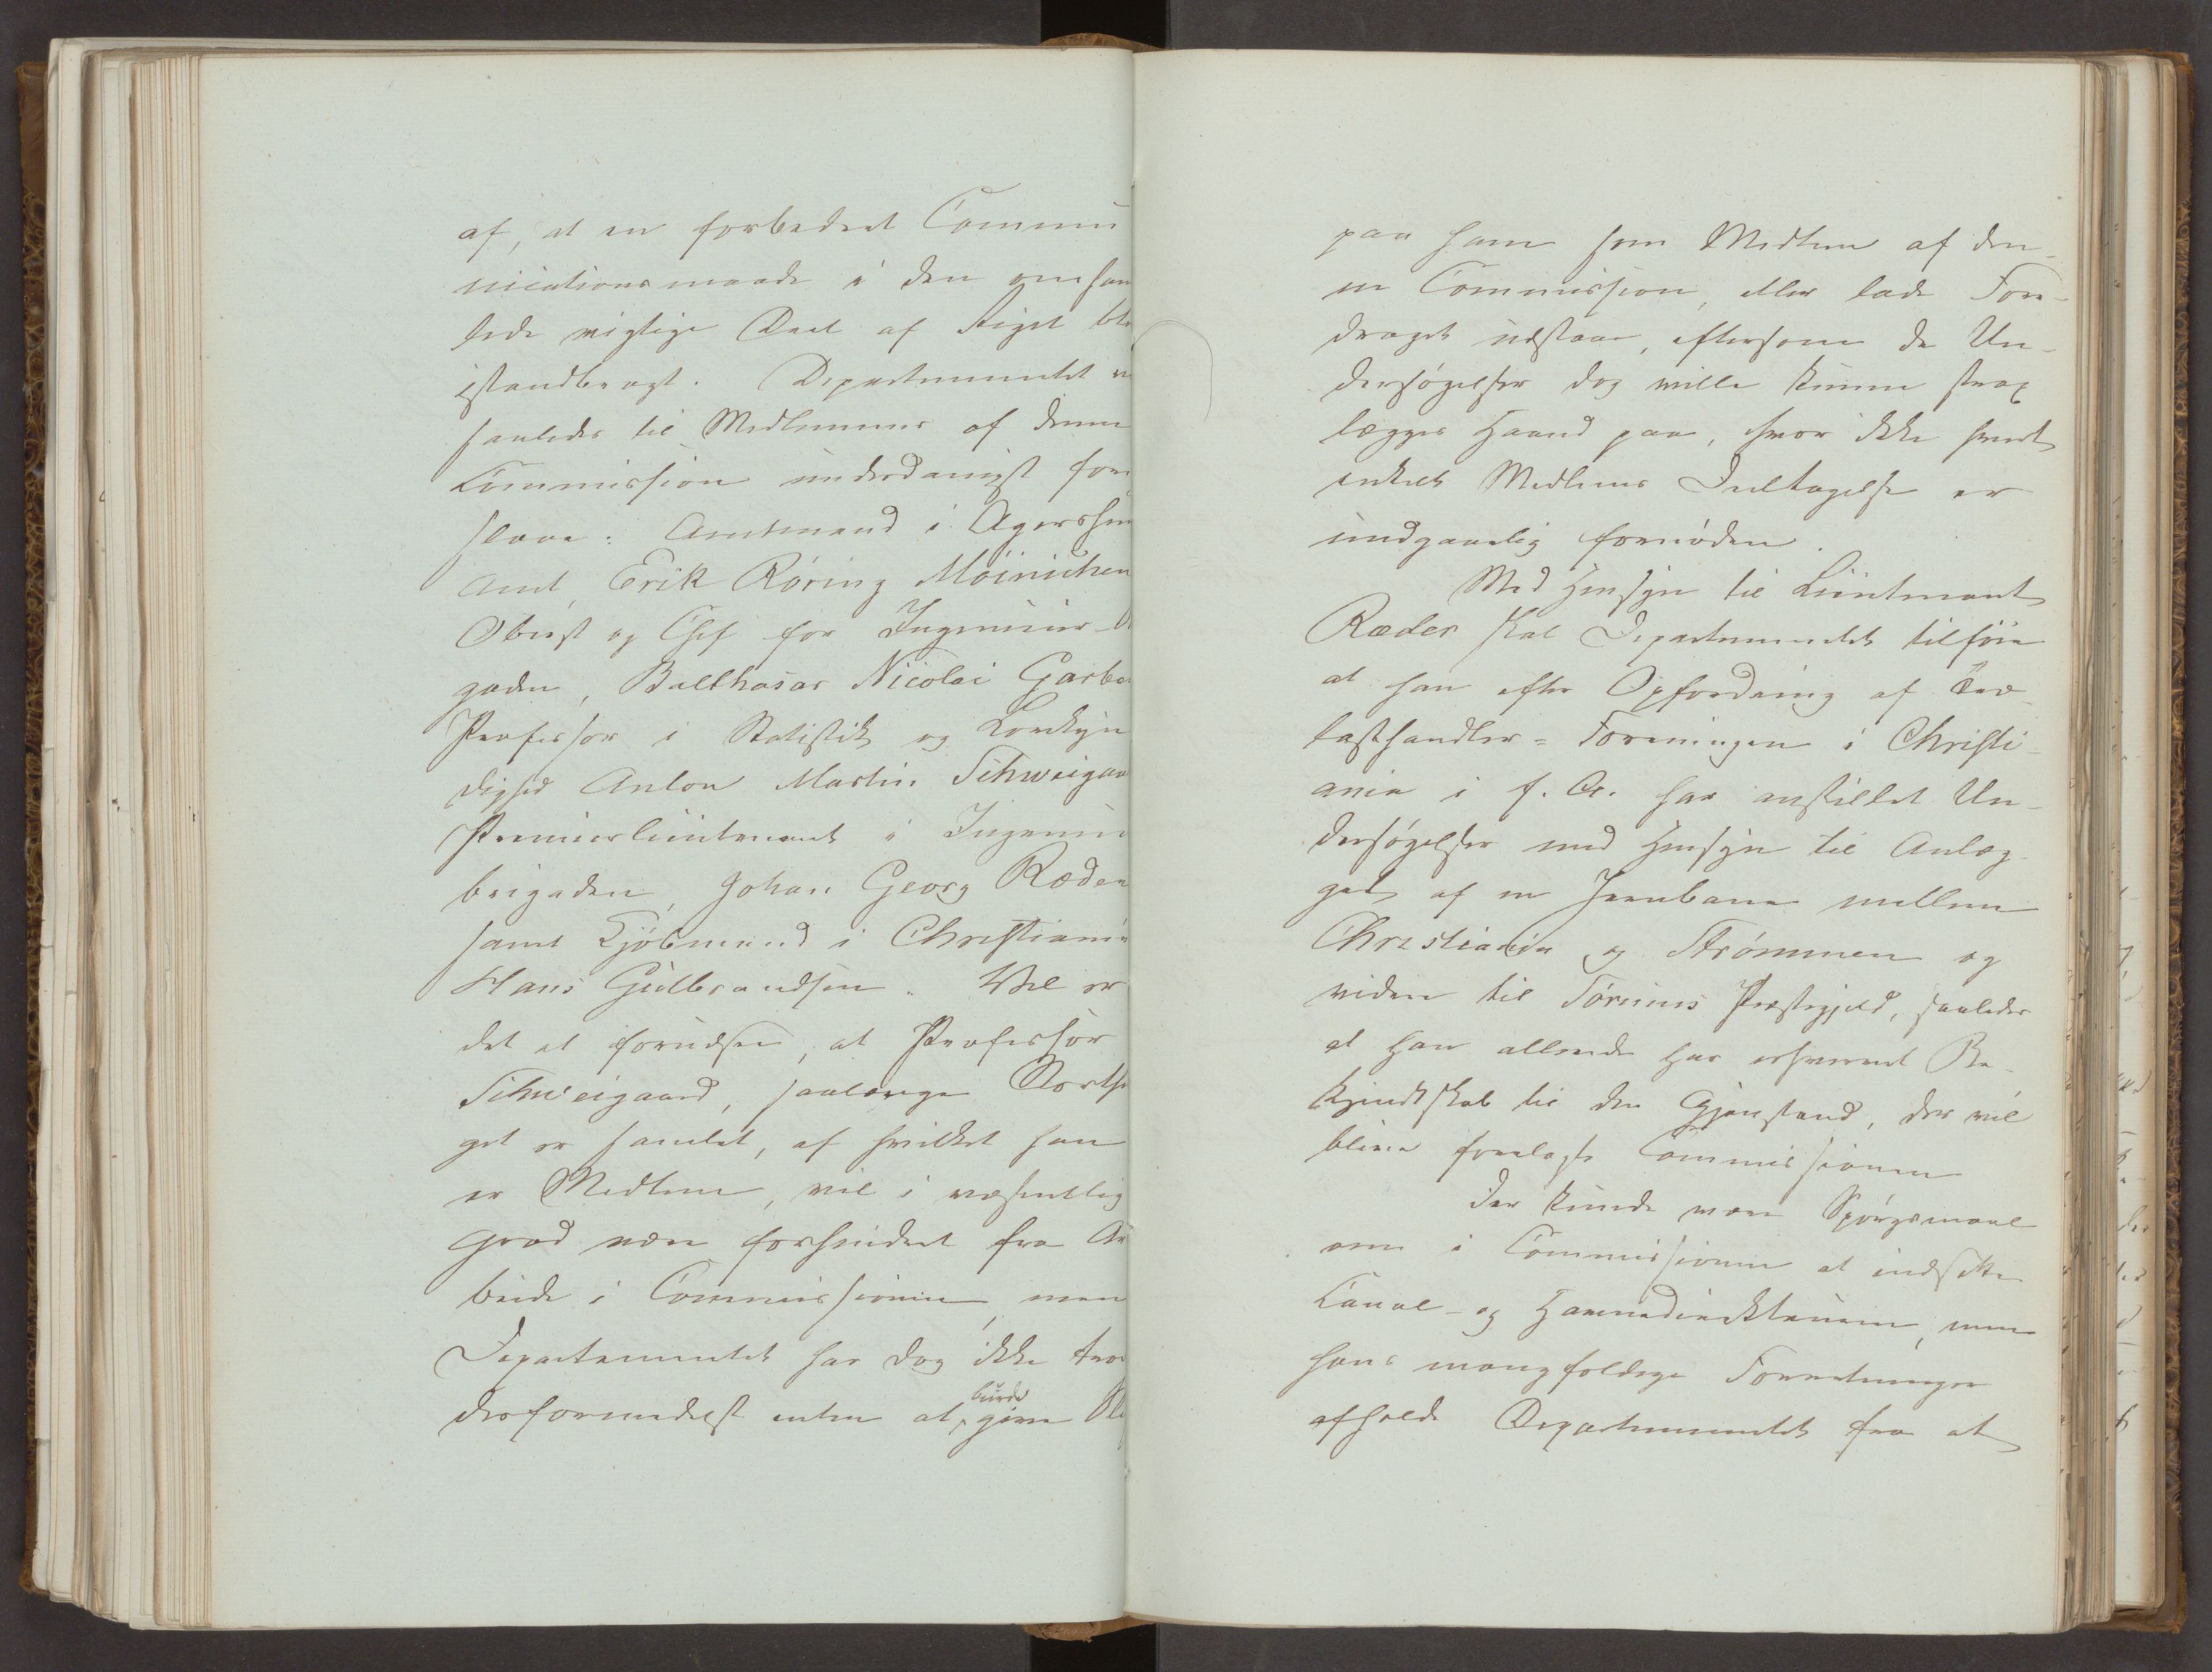 af, at en forbedret Commu
nicationsmaade i den omhan
lede vigtige Deel af Riget ble
istandbragt. Departementet
saaledes til Medlemmer af denne
Commission underdanigst fore
slaae: Amtmand i Agershuus
Amt, Erik Röring Möinichen
Oberst og Chef for Ingenieur-B
gaden, Balthasar Nicolai Garbe
Professor i Statistik og Lovkyn
dighed Anton Martin Schweigaa
Premierlieutenant i Ingenieu
brigaden, Johan Georg Ræder
samt Kjöbmand i Christiania
Hans Gulbrandsen. Vel er
det at forudsee, at Professor
Schweigaard, saalænge Storthi
get er samlet, af hvilket han
er Medlem, vil i væsentlig
Grad være forhindret fra Ar
beide i Commissionen, men
Departementet har dog ikke troe
derformedelst enten at burde give Sli
paa ham som Medlem af den-
ne Commission, eller lade Fore-
draget udstaae, eftersom de Un-
dersögelser dog ville kunne strax
lægges Haand paa, hvor ikke hvert
enkelt Medlems Deeltagelse er
undgaaelig fornöden.
Med Hensyn til Lieutenant
Ræder skal Departementet tilföie
at han efter Opfordring af Træ-
lasthandler-Foreningen i Christi-
ania i f. A. har anstillet Un-
dersögelser med Hensyn til Anlæg-
get af en Jernbane mellem
Christiania og Strömmen og
videre til Sörums Præstegjeld, saaledes
at han allerede har erhvervet Be-
kjendtskab til den Gjenstand, der vil
blive forelagt Commissionen
Der kunde være Spörgsmaal
om i Commissionen at indsætte
Canal- og Havnedirekteuren, men
hans mangfoldige Forretninger
afholde Departementet fra at